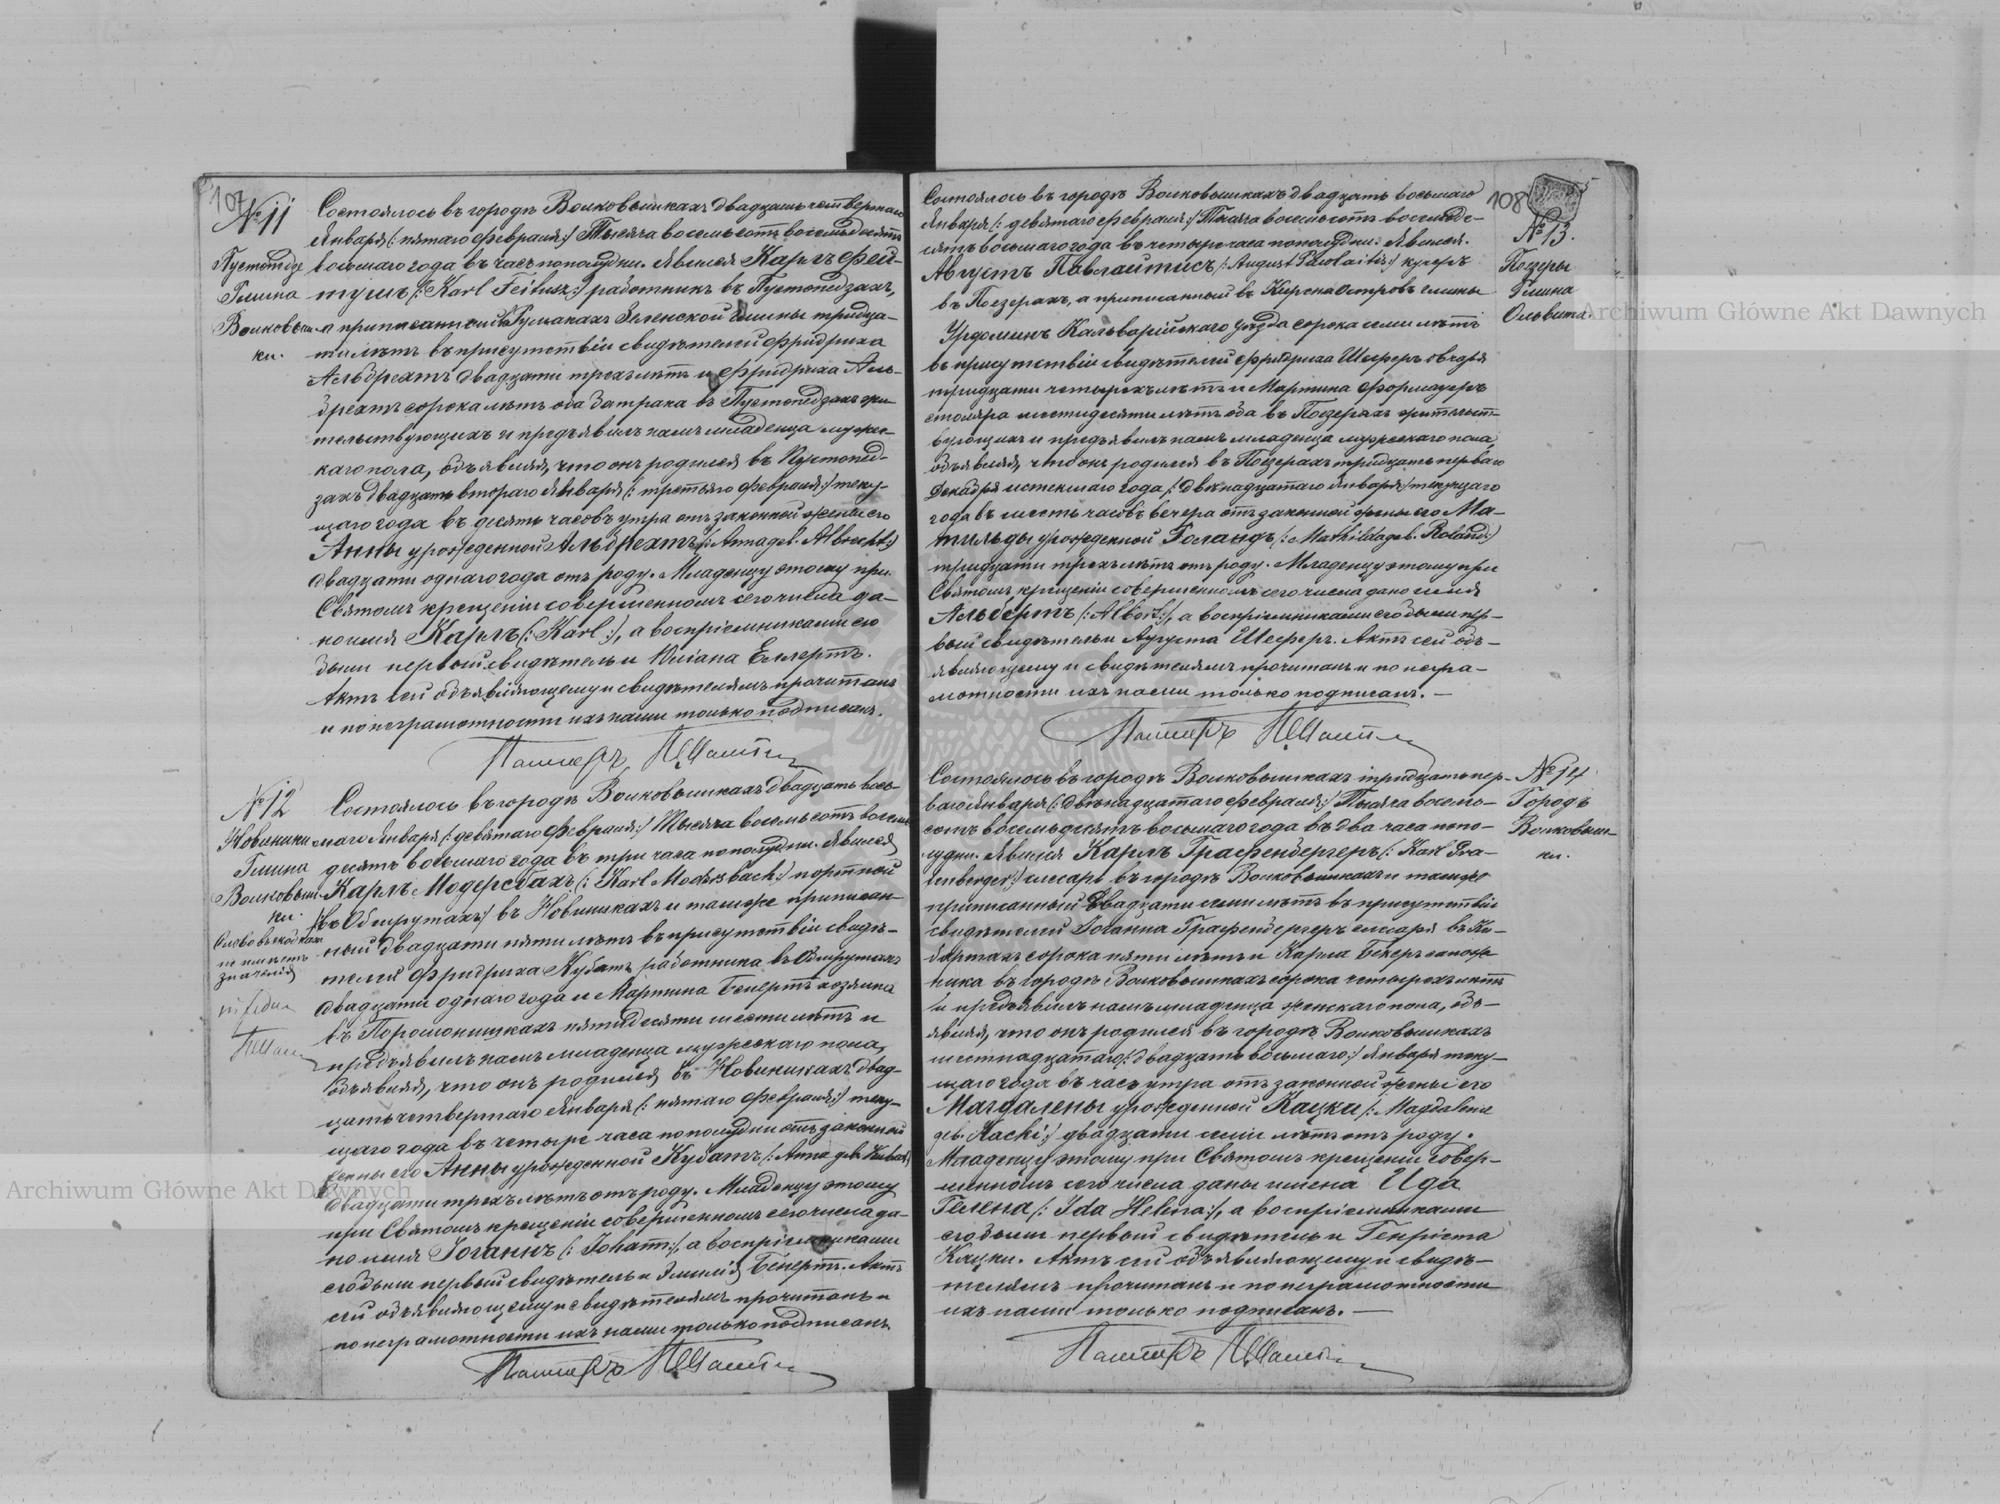 107
№ 11
Пустопедзе
Гмина
Волковыш-
ки.
Состоялось въ городѣ Волковышкахъ двадцать четвертаго
Января (: пятаго Февраля :) Тысяча восемьсотъ восемьдесятъ
восьмаго года въ часъ пополудни. Явился Карлъ Фей-
тушъ (: Karl Feitusz :) работникъ въ Пустопедзахъ,
а приписанный въ Гулакахъ Зеленской гмины тридца-
ти лѣтъ въ присутствіи свидѣтелей Фридриха
Альбрехтъ двадцати трехъ лѣтъ и Фридриха Аль-
брехтъ сорока лѣтъ оба батрака въ Пустопедзахъ жи-
тельствующихъ и предъявилъ намъ младенца мужес-
каго пола, объявляя, что онъ родился въ Пустопед-
захъ двадцать втораго Января (: третьяго Февраля :) теку-
щаго года въ десять часовъ утра отъ законной жены его
Анны урожденной Альбрехтъ (: Anna geb. Albrecht :)
двадцати однаго года отъ роду. Младенцу этому при
Святомъ крещеніи совершенномъ сего числа да-
но имя Карлъ (: Karl :), а воспріемниками его
были первый свидѣтель и Юліана Еллертъ.
Актъ сей объявляющему и свидѣтелямъ прочитанъ
и по неграмотности ихъ нами только подписанъ.
Пасторъ
№ 12
Новиники
Гмина
Волковыш-
ки.
Слово въ скобкахъ
не имѣетъ
значенія
Состоялось въ городѣ Волковышкахъ двадцать вось-
маго Января (: девятаго Февраля :) Тысяча восемьсотъ восемь-
десятъ восьмаго года въ три часа пополудни. Явился
Карлъ Модерсбахъ (: Karl Modersbach :) портной
(въ Обшрутахъ) въ Новиникахъ и тамъ же приписан-
ный двадцати пяти лѣтъ въ присутствіи свидѣ-
телей Фридриха Кубатъ работника въ Обшрутахъ
двадцати однаго года и Мартина Бенертъ хозяина
въ пятидесяти шести лѣтъ и
предъявилъ намъ младенца мужескаго пола,
объявляя, что онъ родился въ Новиникахъ двад-
цать четвертаго Января (: пятаго Февраля :) теку-
щаго года въ четыре часа пополудни отъ законной
жены его Анны урожденной Кубатъ (: Anna geb. Kubat :)
двадцати трехъ лѣтъ отъ роду. Младенцу этому
при Святомъ крещеніи совершенномъ сего числа да-
но имя Іоганнъ (: Johann :), а воспріемниками
его были первый свидѣтель и Эмилія Бенертъ. Актъ
сей объявляющему и свидѣтелямъ прочитанъ и
по неграмотности ихъ нами только подписанъ.
Пасторъ
108
№ 13.
Поезеры
Гмина
Ольвита
Состоялось въ городѣ Волковышкахъ двадцать восьмаго
Января (: девятаго Февраля :) Тысяча восемьсотъ восемьде-
сятъ восьмаго года въ четыре часа пополудни. Явился
Августъ Павлайтисъ (: August Pawlaitis :) кучеръ
въ Поезерахъ, а приписанный въ Кирснаостровъ гмины
Урдоминъ Кальварійскаго уѣзда сорока семи лѣтъ
въ присутствіи свидѣтелей Фридриха Шеферъ овчаря
тридцати четырехъ лѣтъ и Мартина Формауеръ
столяра шестидесяти лѣтъ оба въ Поезерахъ жительст-
вующихъ и предъявилъ намъ младенца мужескаго пола,
объявляя, что онъ родился въ Поезерахъ тридцать перваго
Декабря истекшаго года (: двѣнадцатаго Января :) текущаго
года въ шесть часовъ вечера отъ законной жены его Ма-
тильды урожденной Роландъ (: Mathilda geb. Roland :)
тридцати трехъ лѣтъ отъ роду. Младенцу этому при
Святомъ крещеніи совершенномъ сего числа дано имя
Альбертъ (: Albert :), а воспріемниками его были пер-
вый свидѣтель и Августа Шеферъ. Актъ сей объ-
являющему и свидѣтелямъ прочитанъ и по негра-
мотности ихъ нами только подписанъ. —
Пасторъ
№ 14
Городъ
Волковыш-
ки.
Состоялось въ городѣ Волковышкахъ тридцать пер-
ваго Января (: двѣнадцатаго Февраля :) Тысяча восемь-
сотъ восемьдесятъ восьмаго года въ два часа попо-
лудни. Явился Карлъ Графенбергеръ (: Karl Gra-
fenberger :) слесарь въ городѣ Волковышкахъ и тамъ же
приписанный двадцати семи лѣтъ въ присутствіи
свидѣтелей Іоганна Графенбергеръ слесаря въ Ки-
бартахъ сорока пяти лѣтъ и Карла Бекеръ сапож-
ника въ городѣ Волковышкахъ сорока четырехъ лѣтъ
и предъявилъ намъ младенца женскаго пола, объ-
являя, что онъ родился въ городѣ Волковышкахъ
шестнадцатаго (: двадцать восьмаго :) Января теку-
щаго года въ часъ утра отъ законной жены его
Магдалены урожденной Кацки (: Magdalena
geb. Kacki :) двадцати семи лѣтъ отъ роду.
Младенцу этому при Святомъ крещеніи совер-
шенномъ сего числа даны имена Ида
Гелена (: Ida Helena :), а воспріемниками
его были первый свидѣтель и Генріета
Кацки. Актъ сей объявляющему и свидѣ-
телямъ прочитанъ и по неграмотности
ихъ нами только подписанъ. —
Пасторъ
Archiwum Główne Akt Dawnych
Archiwum Główne Akt Dawnych